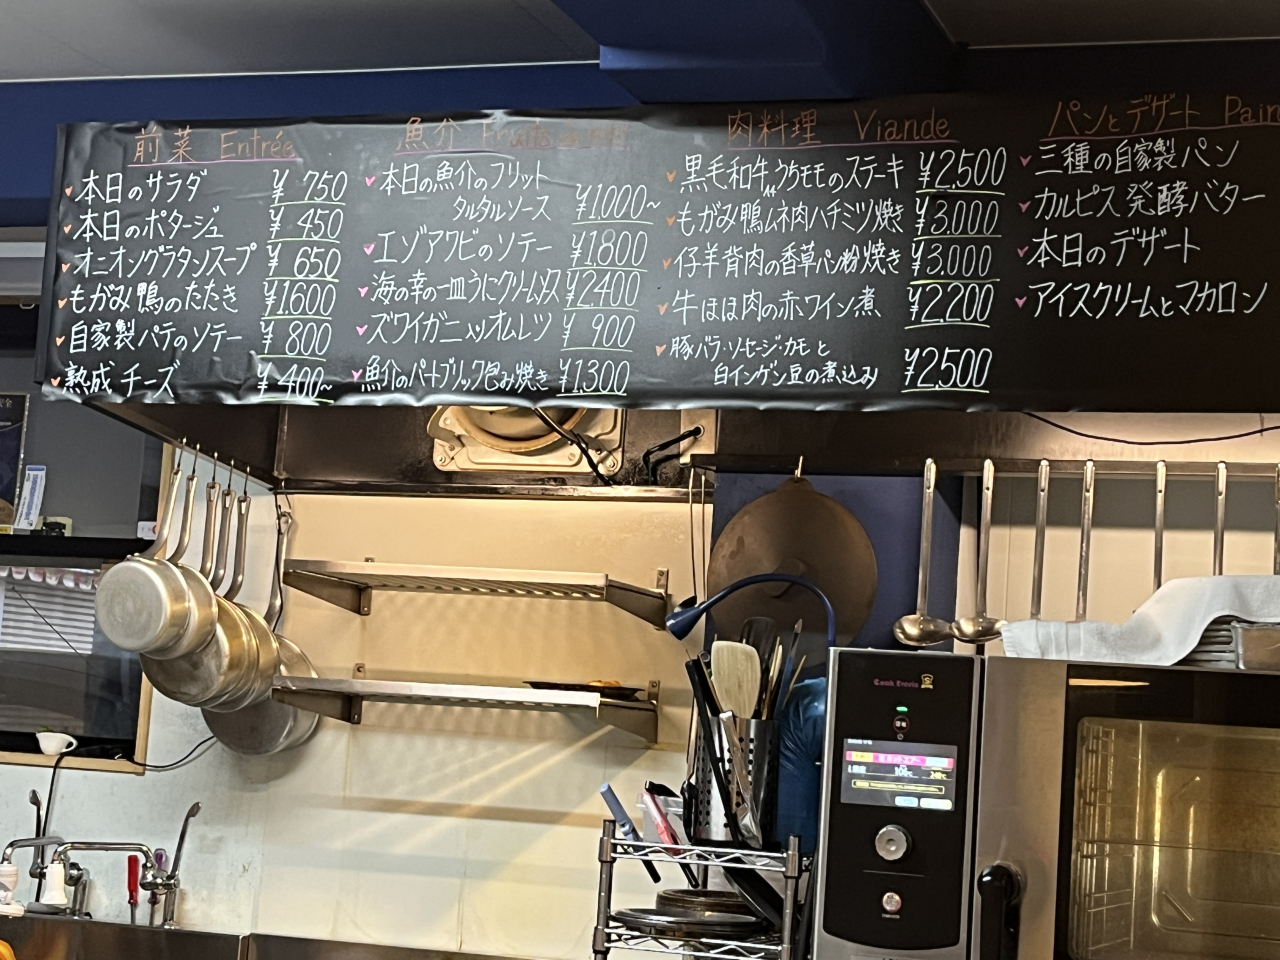 前菜 Entrée
本日のサラダ ¥750
本日のポタージュ ¥450
オニオングラタンスープ ¥650
もがみ鴨のたたき ¥1.600
自家製パテのソテー ¥800
熟成チーズ ¥400~
魚介 Fruits
本日の魚介のフリット
タルタルソース ¥1.000~
エゾアワビのソテー ¥1.800
海の幸の一皿うにクリームソース ¥2400
ズワイガニ入りオムレツ ¥900
魚介のパートブリック包み焼き ¥1.300
肉料理 Viande
黒毛和牛うちモモのステーキ ¥2,500
もがみ鴨ムネ肉ハチミツ焼き ¥3.000
仔羊背肉の香草パン粉焼き ¥3.000
牛ほほ肉の赤ワイン煮 ¥2,200
豚バラ・ソーセージ・カモと
白インゲン豆の煮込み ¥2,500
パンとデザート Pain
三種の自家製パン
カルピス発酵バター
本日のデザート
アイスクリームとマカロン